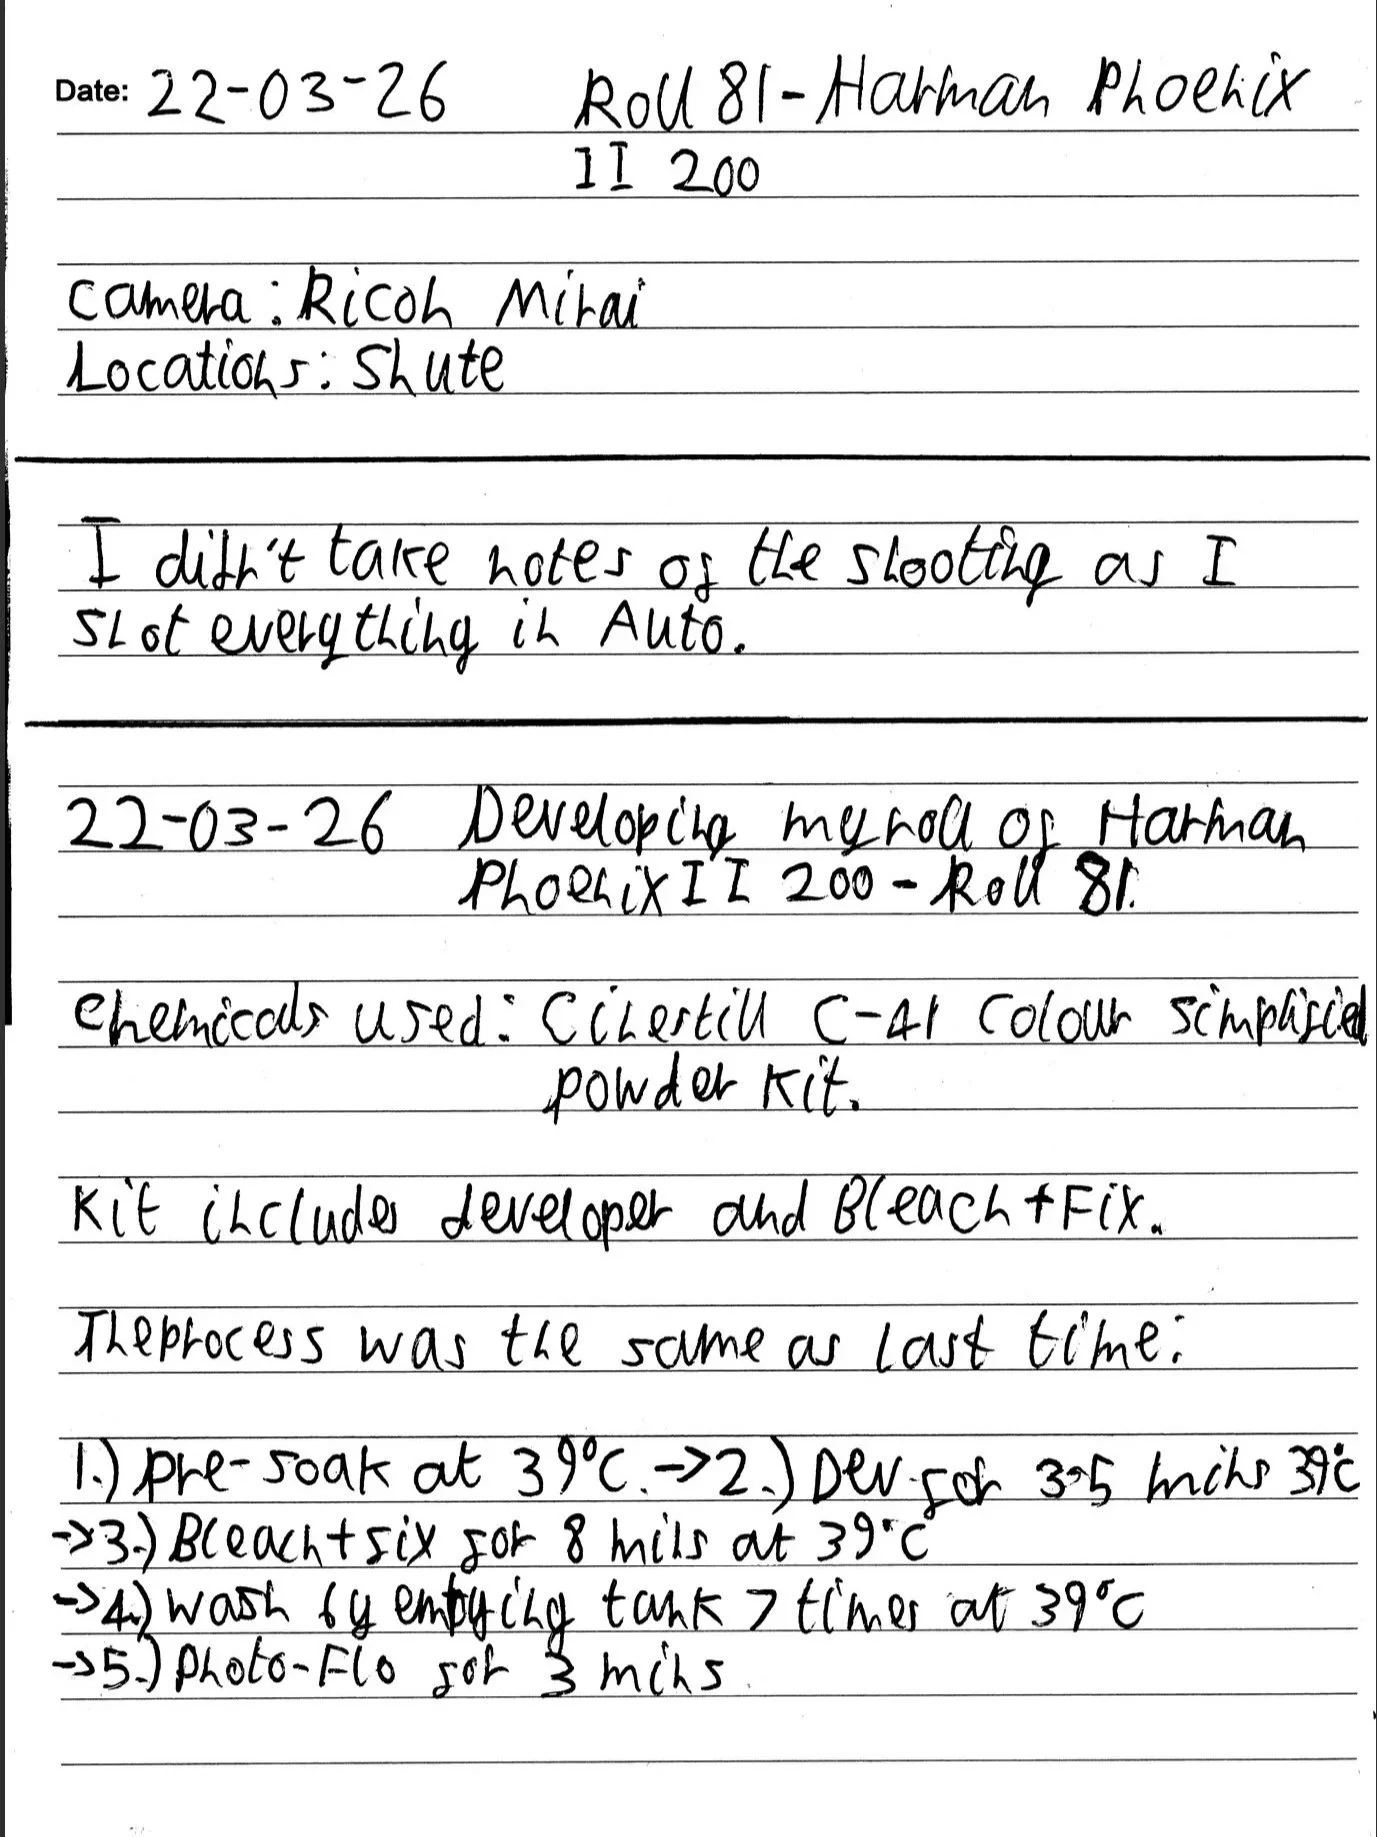 Date: 22-03-26 Roll 81 - Harman Phoenix
II 200
Camera: Ricoh Mirai
Locations: Shute
I didn't take notes of the shooting as I
shot everything in Auto.
22-03-26 Developing my roll of Harman
Phoenix II 200 - Roll 81.
Chemicals used: Cinestill C-41 Colour simplified
powder Kit.
Kit includes developer and Bleach + Fix.
The process was the same as last time:
1.) pre-soak at 39°C. -> 2.) Dev for 3.5 mins 39°C
-> 3.) Bleach + fix for 8 mins at 39°C
-> 4.) wash by emptying tank 7 times at 39°C
-> 5.) Photo-Flo for 3 mins.